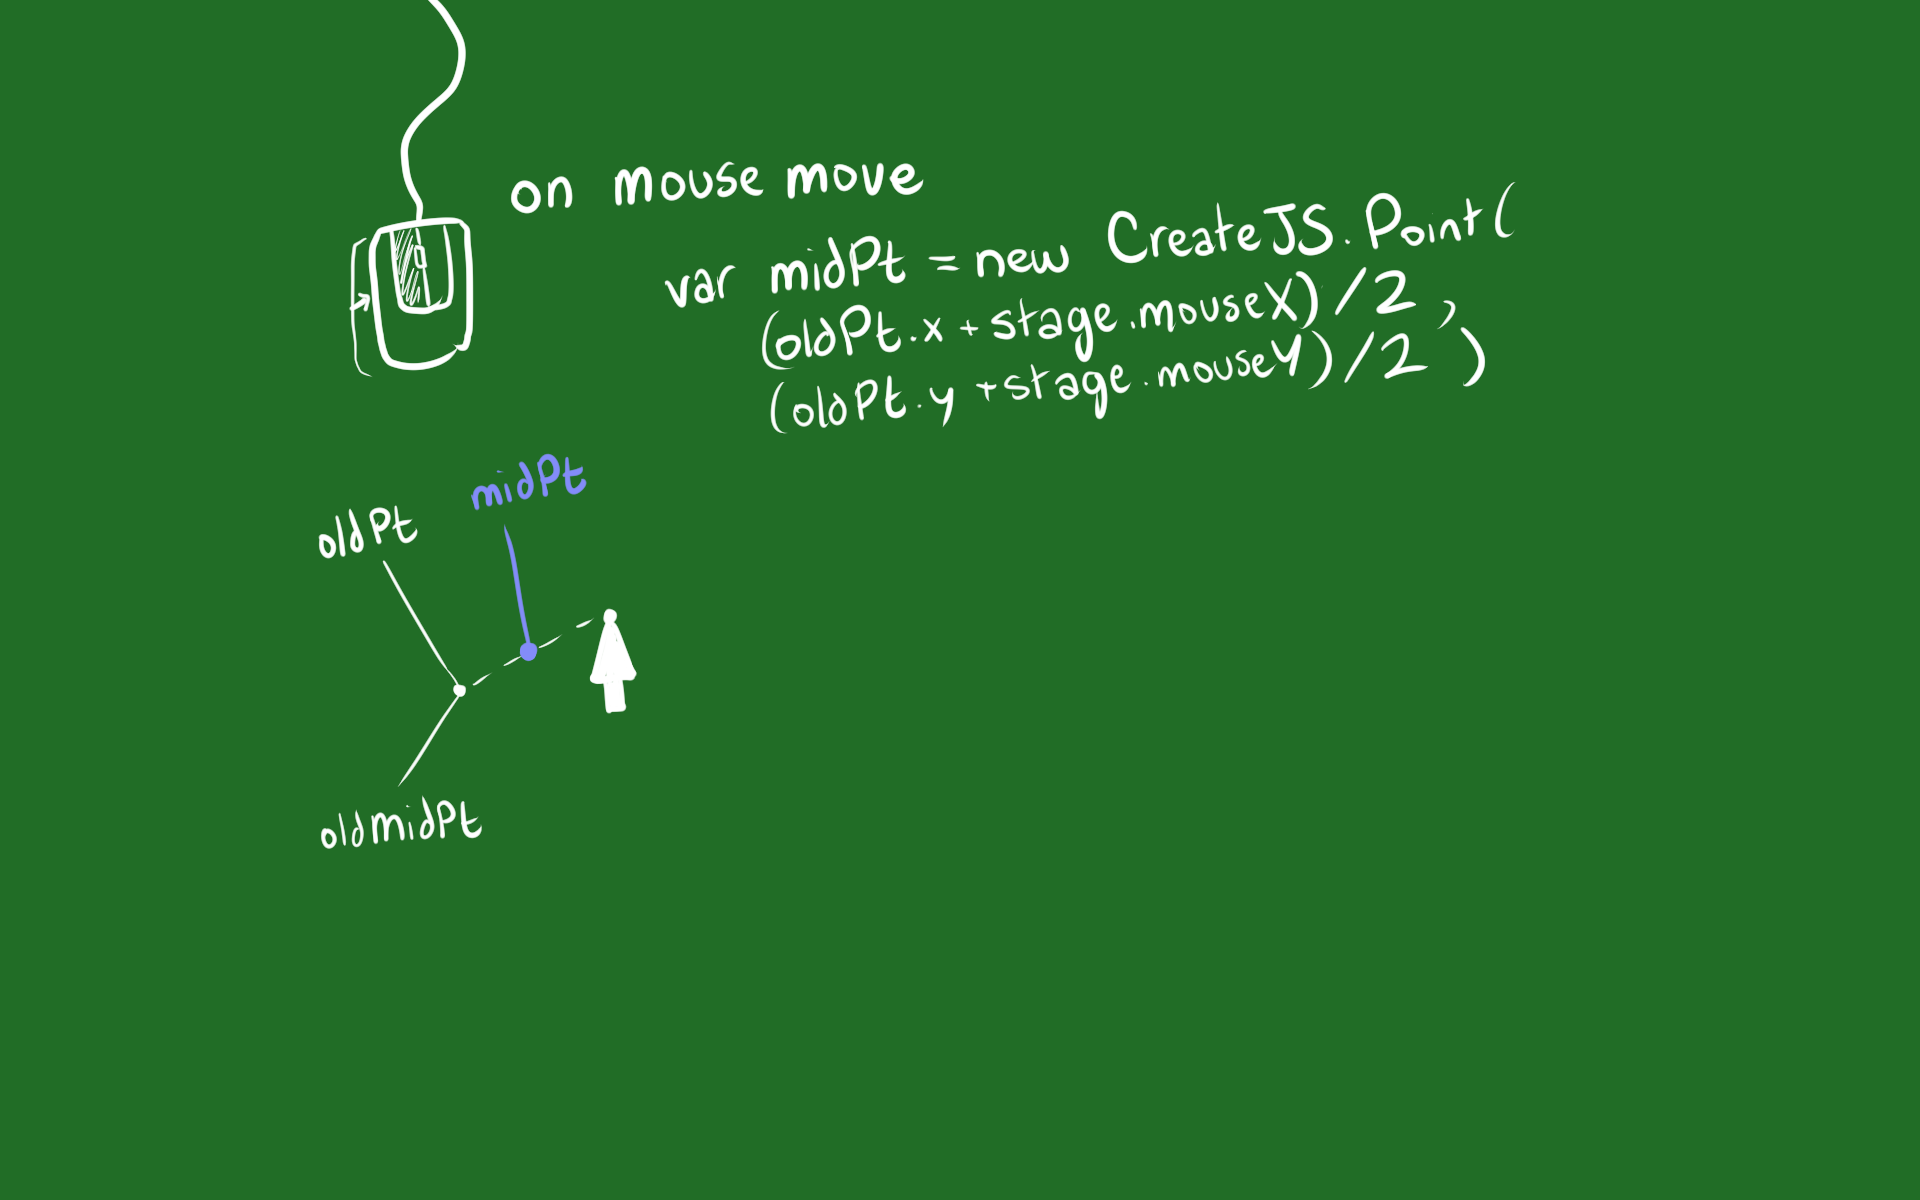 on mouse move
var midPt = new CreateJS.Point(
(oldPt.x + stage.mouseX)/2 ,
(oldPt.y + stage.mouseY)/2 )
midPt
oldPt
oldmidPt